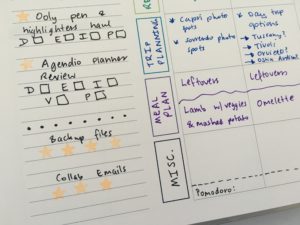 Ooly pen &
highlighters haul
D E I P
Agendio planner
Review
D E I
V P
Backup files
Collab Emails
TRIP PLANNING
Capri photo
spots
Sorrento photo
spots
Day trip
options
Tuscany?
Tivoli
Orvieto?
Ostia
MEAL PLAN
Leftovers
Leftovers
Lamb w/ veggies
& mashed potato
Omelette
MISC.
Pomodoro: